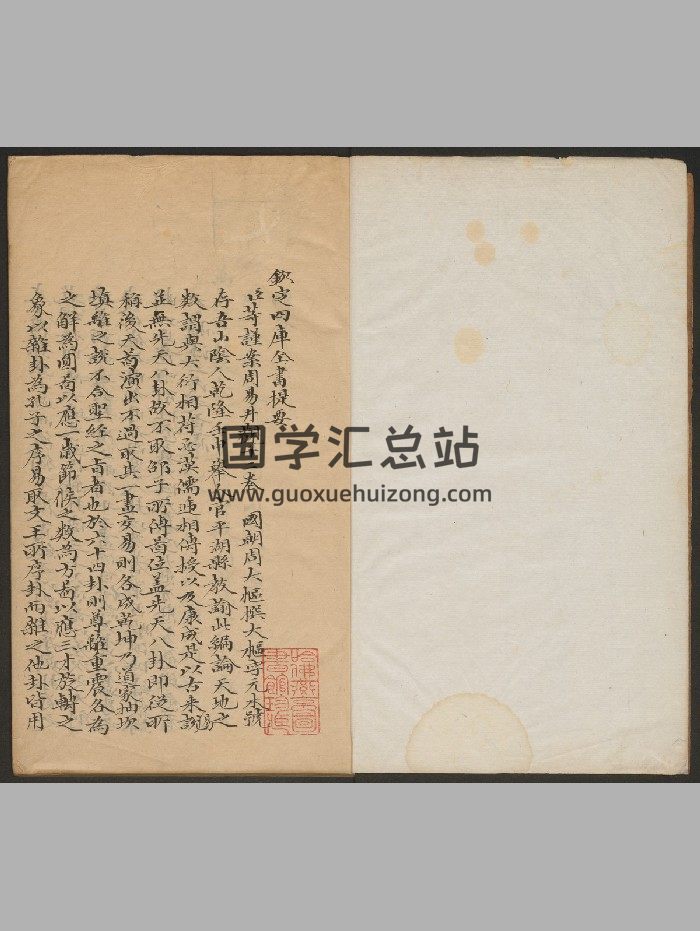 欽定四庫全書提要
臣等謹案周易井觀 卷 國朝周大樞撰大樞字元木號
存吾山陰人乾隆壬申舉人官平湖縣教諭此編論天地之
數謂與大衍相符 漢儒遞相傳授以及康成是以古來說易
並無先天八卦故不取邵子所傳圖位蓋先天八卦即從所
稱後天者演出不過取其一畫交易則各成乾坤乃道家抽坎
填離之說不合聖經之旨者也於六十四卦則尊離重震各為
之解為圓圖以應一歲節候之數為方圖以應三才旋轉之
象以雜卦為孔子之序易取文王所序卦而雜之他卦皆用
哈佛燕京圖書館珍藏
国学汇总站
www.guoxuehuizong.com